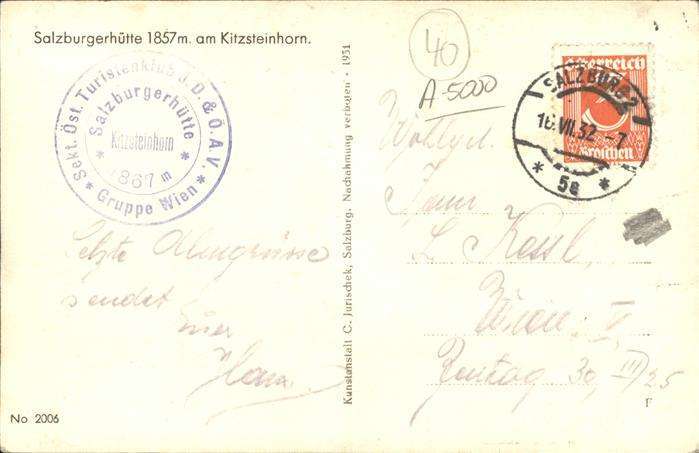 Salzburgerhütte 1857m. am Kitzsteinhorn.
Sekt. Öst. Turistenklub d. D. & Ö. A. V.
* Gruppe Wien *
* Salzburgerhütte *
Kitzsteinhorn
1867 m
Letzte Almgrüsse
sendet
Euer
Hans
No 2006
Kunstanstalt C. Jurischek, Salzburg. Nachahmung verboten · 1931
40
A-5000
Österreich
5
Groschen
SALZBURG 2
16.VII.32.-7
* 5a *
Wohlgeb.
L. Kessl
Wien V
30, III/25
F